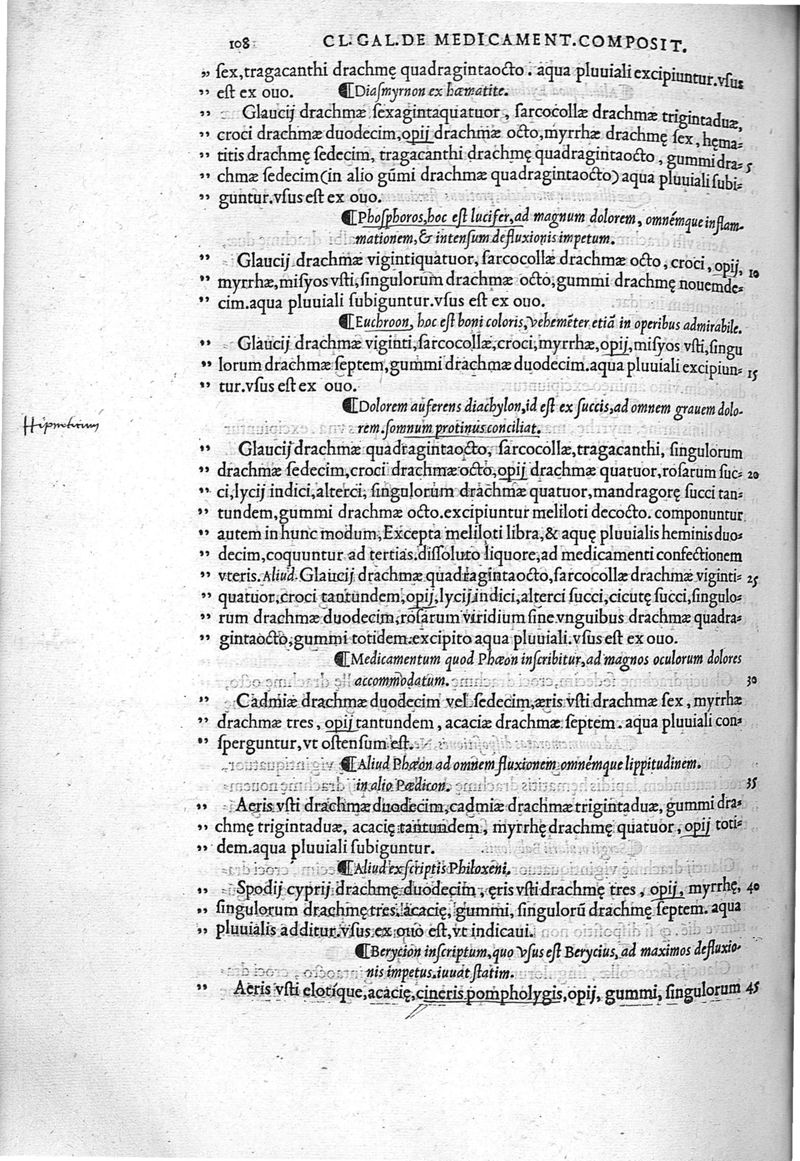 108 CL. GAL. DE MEDICAMENT. COMPOSIT.
„ sex, tragacanthi drachmę quadragintaocto. aqua pluuiali excipiuntur. vsus
„ est ex ouo. ¶Diasmyrnon ex hæmatite.
„ Glaucij drachmæ sexagintaquatuor, sarcocollæ drachmæ trigintaduæ,
„ croci drachmæ duodecim, opij drachmæ octo, myrrhæ drachmę sex, hęma-
„ titis drachmę sedecim, tragacanthi drachmę quadragintaocto, gummi dra- 5
„ chmæ sedecim (in alio gūmi drachmæ quadragintaocto) aqua pluuiali subi-
„ guntur. vsus est ex ouo.
¶Phosphoros, hoc est lucifer, ad magnum dolorem, omnémque inflam-
mationem, & intensum defluxionis impetum.
„ Glaucij drachmæ vigintiquatuor, sarcocollæ drachmæ octo, croci, opij, 10
„ myrrhæ, misyos vsti, singulorum drachmæ octo, gummi drachmę nouemde-
„ cim. aqua pluuiali subiguntur. vsus est ex ouo.
¶Euchroon, hoc est boni coloris, vehemēter etiā in operibus admirabile.
„ Glaucij drachmæ viginti, sarcocollæ, croci, myrrhæ, opij, misyos vsti, singu
„ lorum drachmæ septem, gummi drachmæ duodecim. aqua pluuiali excipiun- 15
„ tur. vsus est ex ouo.
¶Dolorem auferens diachylon, id est ex succis, ad omnem grauem dolo-
rem. somnum protinus conciliat.
„ Glaucij drachmæ quadragintaocto, sarcocollæ, tragacanthi, singulorum
„ drachmæ sedecim, croci drachmæ octo, opij drachmæ quatuor, rosarum suc- 20
„ ci, lycij indici, alterci, singulorum drachmæ quatuor, mandragorę succi tan-
„ tundem, gummi drachmæ octo. excipiuntur meliloti decocto. componuntur
„ autem in hunc modum, Excepta meliloti libra, & aquę pluuialis heminis duo-
„ decim, coquuntur ad tertias. dissoluto liquore, ad medicamenti confectionem
„ vteris. Aliud. Glaucij drachmæ quadragintaocto, sarcocollæ drachmæ viginti- 25
„ quatuor, croci tantundem, opij, lycij indici, alterci succi, cicutę succi, singulo-
„ rum drachmæ duodecim, rosarum viridium sine vnguibus drachmæ quadra-
„ gintaocto, gummi totidem. excipito aqua pluuiali. vsus est ex ouo.
¶Medicamentum quod Phæon inscribitur, ad magnos oculorum dolores
accommodatum. 30
„ Cadmiæ drachmæ duodecim vel sedecim, æris vsti drachmæ sex, myrrhæ
„ drachmæ tres, opij tantundem, acaciæ drachmæ septem. aqua pluuiali con-
„ sperguntur, vt ostensum est.
¶Aliud Phæon ad omnem fluxionem omnémque lippitudinem.
in alio Pædicon. 35
„ Aeris vsti drachmæ duodecim, cadmiæ drachmæ trigintaduæ, gummi dra-
„ chmę trigintaduæ, acacię tantundem, myrrhę drachmę quatuor, opij toti-
„ dem. aqua pluuiali subiguntur.
¶Aliud ex scriptis Philoxeni.
„ Spodij cyprij drachmę duodecim, ęris vsti drachmę tres, opij, myrrhę, 40
„ singulorum drachmę tres. acacię, gummi, singulorū drachmę septem. aqua
„ pluuialis additur. vsus ex ouo est, vt indicaui.
¶Berycion inscriptum, quo vsus est Berycius, ad maximos defluxio-
nis impetus. iuuat statim.
„ Aeris vsti elotique, acacię, cineris pompholygis, opij, gummi, singulorum 45